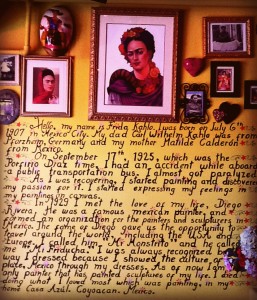 Hello, my name is Frida Kahlo. I was born on July 6th
1907 in Mexico City. My dad Carl Wilhelm Kahlo was from
Pforzheim, Germany and my mother Matilde Calderón
from Mexico.
On September 17th, 1925, which was the
Porfirio Diaz time, I had an accident while aboard
a public transportation bus. I almost got paralyzed
As I was recovering, I started painting and discovering
my passion for it. I started expressing my feelings on
paintings in canvas.
In 1929 I met the love of my life, Diego
Rivera. He was a famous mexican painter, and we
formed an organization for the painters and sculpturers in
Mexico. The fame of Diego gave us the opportunity to
travel around the world, including the U.S.A. and
Europe. I called him "My Monstrito" and he called
me "My Friducha". I was always recognized by the
way I dressed because I showed the culture of my
place, Mexico through my dresses. As of now I am the
only painter that has painted sculptures of my life. I died
doing what I loved most which was painting, in my
home Casa Azul, Coyoacan, Mexico.